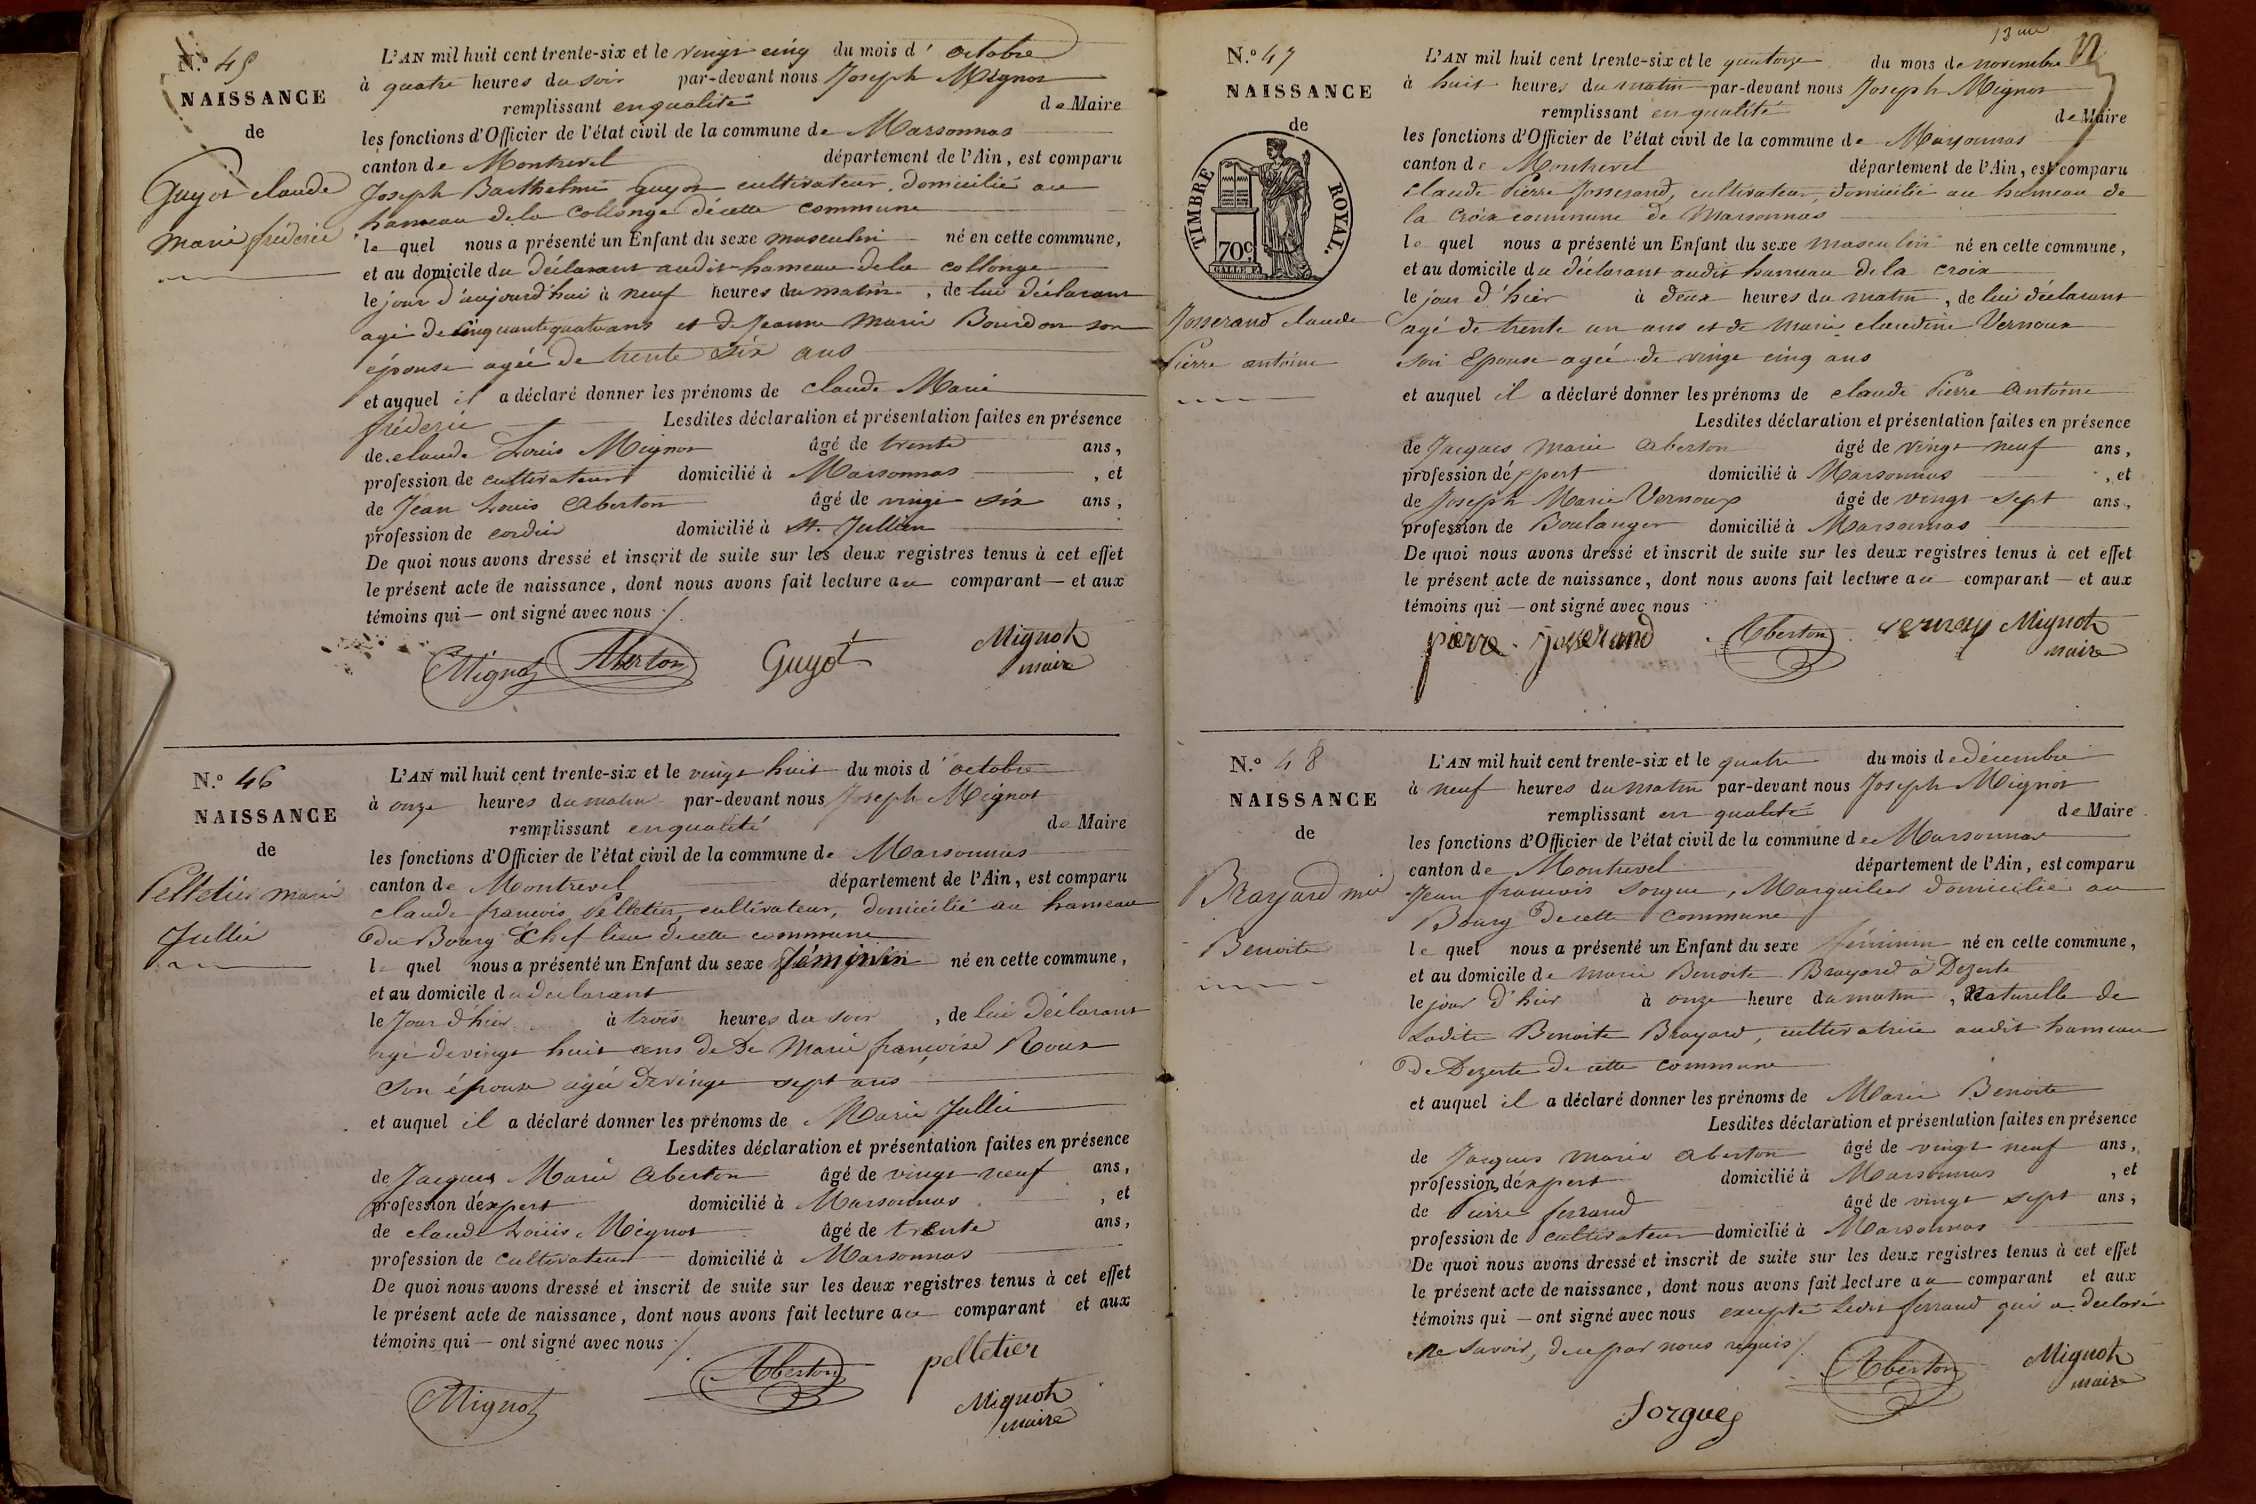 N.º 45
NAISSANCE
de
Guyot claude
marie fréderic
L'AN mil huit cent trente-six et le vingt cinq du mois d' octobre
à quatre heures du soir par-devant nous Joseph Mignot
remplissant en qualité de Maire
les fonctions d'Officier de l'état civil de la commune de Marsonnas
canton de Montrevel département de l'Ain, est comparu
Joseph Barthelmi Guyot cultivateur, domicilié au
hameau de la Collonge de cette commune
le quel nous a présenté un Enfant du sexe masculin né en cette commune,
et au domicile du déclarant audit hameau de la collonge
le jour d'aujourd'hui à neuf heures du matin, de lui déclarant
agé de cinquante quatre ans et de Jeanne Marie Bourdon son
épouse agée de trente six ans
et auquel il a déclaré donner les prénoms de claude Marie
fréderic Lesdites déclaration et présentation faites en présence
de claude Louis Mignot âgé de trente ans,
profession de cultivateur domicilié à Marsonnas, et
de Jean Louis Aberton âgé de vingt six ans,
profession de cordier domicilié à St. Jullien
De quoi nous avons dressé et inscrit de suite sur les deux registres tenus à cet effet
le présent acte de naissance, dont nous avons fait lecture au comparant — et aux
témoins qui — ont signé avec nous ./.
Mignot Aberton Guyot Mignot
maire
N.º 46
NAISSANCE
de
Pelletier marie
Jullie
L'AN mil huit cent trente-six et le vingt huit du mois d' octobre
à onze heures du matin par-devant nous Joseph Mignot
remplissant en qualité de Maire
les fonctions d'Officier de l'état civil de la commune de Marsonnas
canton de Montrevel département de l'Ain, est comparu
claude françois Pelletier, cultivateur, domicilié au hameau
du Bourg Chef lieu de cette commune
le quel nous a présenté un Enfant du sexe féminin né en cette commune,
et au domicile du declarant
le Jour d'hier à trois heures du soir, de lui déclarant
agé de vingt huit ans de De Marie françoise Roux
son épouse agée de vingt sept ans
et auquel il a déclaré donner les prénoms de Marie Jullie
Lesdites déclaration et présentation faites en présence
de Jacques Marie Aberton âgé de vingt neuf ans,
profession d'éxpert domicilié à Marsonnas, et
de claude Louis Mignot âgé de trente ans,
profession de cultivateur domicilié à Marsonnas
De quoi nous avons dressé et inscrit de suite sur les deux registres tenus à cet effet
le présent acte de naissance, dont nous avons fait lecture au comparant et aux
témoins qui — ont signé avec nous ./.
Mignot Aberton pelletier
Mignot
maire
N.º 47
NAISSANCE
de
TIMBRE ROYAL.
70c
Josserand claude
Pierre antoine
L'AN mil huit cent trente-six et le quatorze du mois de novembre
à huit heures du matin par-devant nous Joseph Mignot
remplissant en qualité de Maire
les fonctions d'Officier de l'état civil de la commune de Marsonnas
canton de Montrevel département de l'Ain, est comparu
claude Pierre Josserand, cultivateur, domicilié au hameau de
la croix commune de Marsonnas
le quel nous a présenté un Enfant du sexe masculin né en cette commune,
et au domicile du déclarant audit hameau de la croix
le jour d'hier à deux heures du matin, de lui déclarant
agé de trente un ans et de Marie claudine Vernoux
son Epouse agée de vingt cinq ans
et auquel il a déclaré donner les prénoms de claude Pierre Antoine
Lesdites déclaration et présentation faites en présence
de Jacques Marie Aberton âgé de vingt neuf ans,
profession d'éxpert domicilié à Marsonnas, et
de Joseph Marie Vernoux âgé de vingt sept ans,
profession de Boulanger domicilié à Marsonnas
De quoi nous avons dressé et inscrit de suite sur les deux registres tenus à cet effet
le présent acte de naissance, dont nous avons fait lecture au comparant — et aux
témoins qui — ont signé avec nous
pierre Josserand Aberton Mignot
maire
N.º 48
NAISSANCE
de
Brayard mie
Benoite
L'AN mil huit cent trente-six et le quatre du mois de décembre
à neuf heures du matin par-devant nous Joseph Mignot
remplissant en qualité de Maire
les fonctions d'Officier de l'état civil de la commune de Marsonnas
canton de Montrevel département de l'Ain, est comparu
Jean francois Sorgue, Marguilier domicilié au
Bourg de cette commune
le quel nous a présenté un Enfant du sexe féminin né en cette commune,
et au domicile de marie Benoite Brayard à Dezerte
le jour d'hier à onze heure du matin, Naturelle de
Ladite Benoite Brayard, cultivatrice audit hameau
de Dezerte de cette commune
et auquel il a déclaré donner les prénoms de Marie Benoite
Lesdites déclaration et présentation faites en présence
de Jacques marie Aberton âgé de vingt neuf ans,
profession d'éxpert domicilié à Marsonnas, et
de Pierre ferrand âgé de vingt sept ans,
profession de cultivateur domicilié à Marsonnas
De quoi nous avons dressé et inscrit de suite sur les deux registres tenus à cet effet
le présent acte de naissance, dont nous avons fait lecture au comparant et aux
témoins qui — ont signé avec nous excepté Ledit ferrand qui a déclaré
Ne Savoir, de ce par nous requis ./.
Aberton Mignot
maire
Sorgues